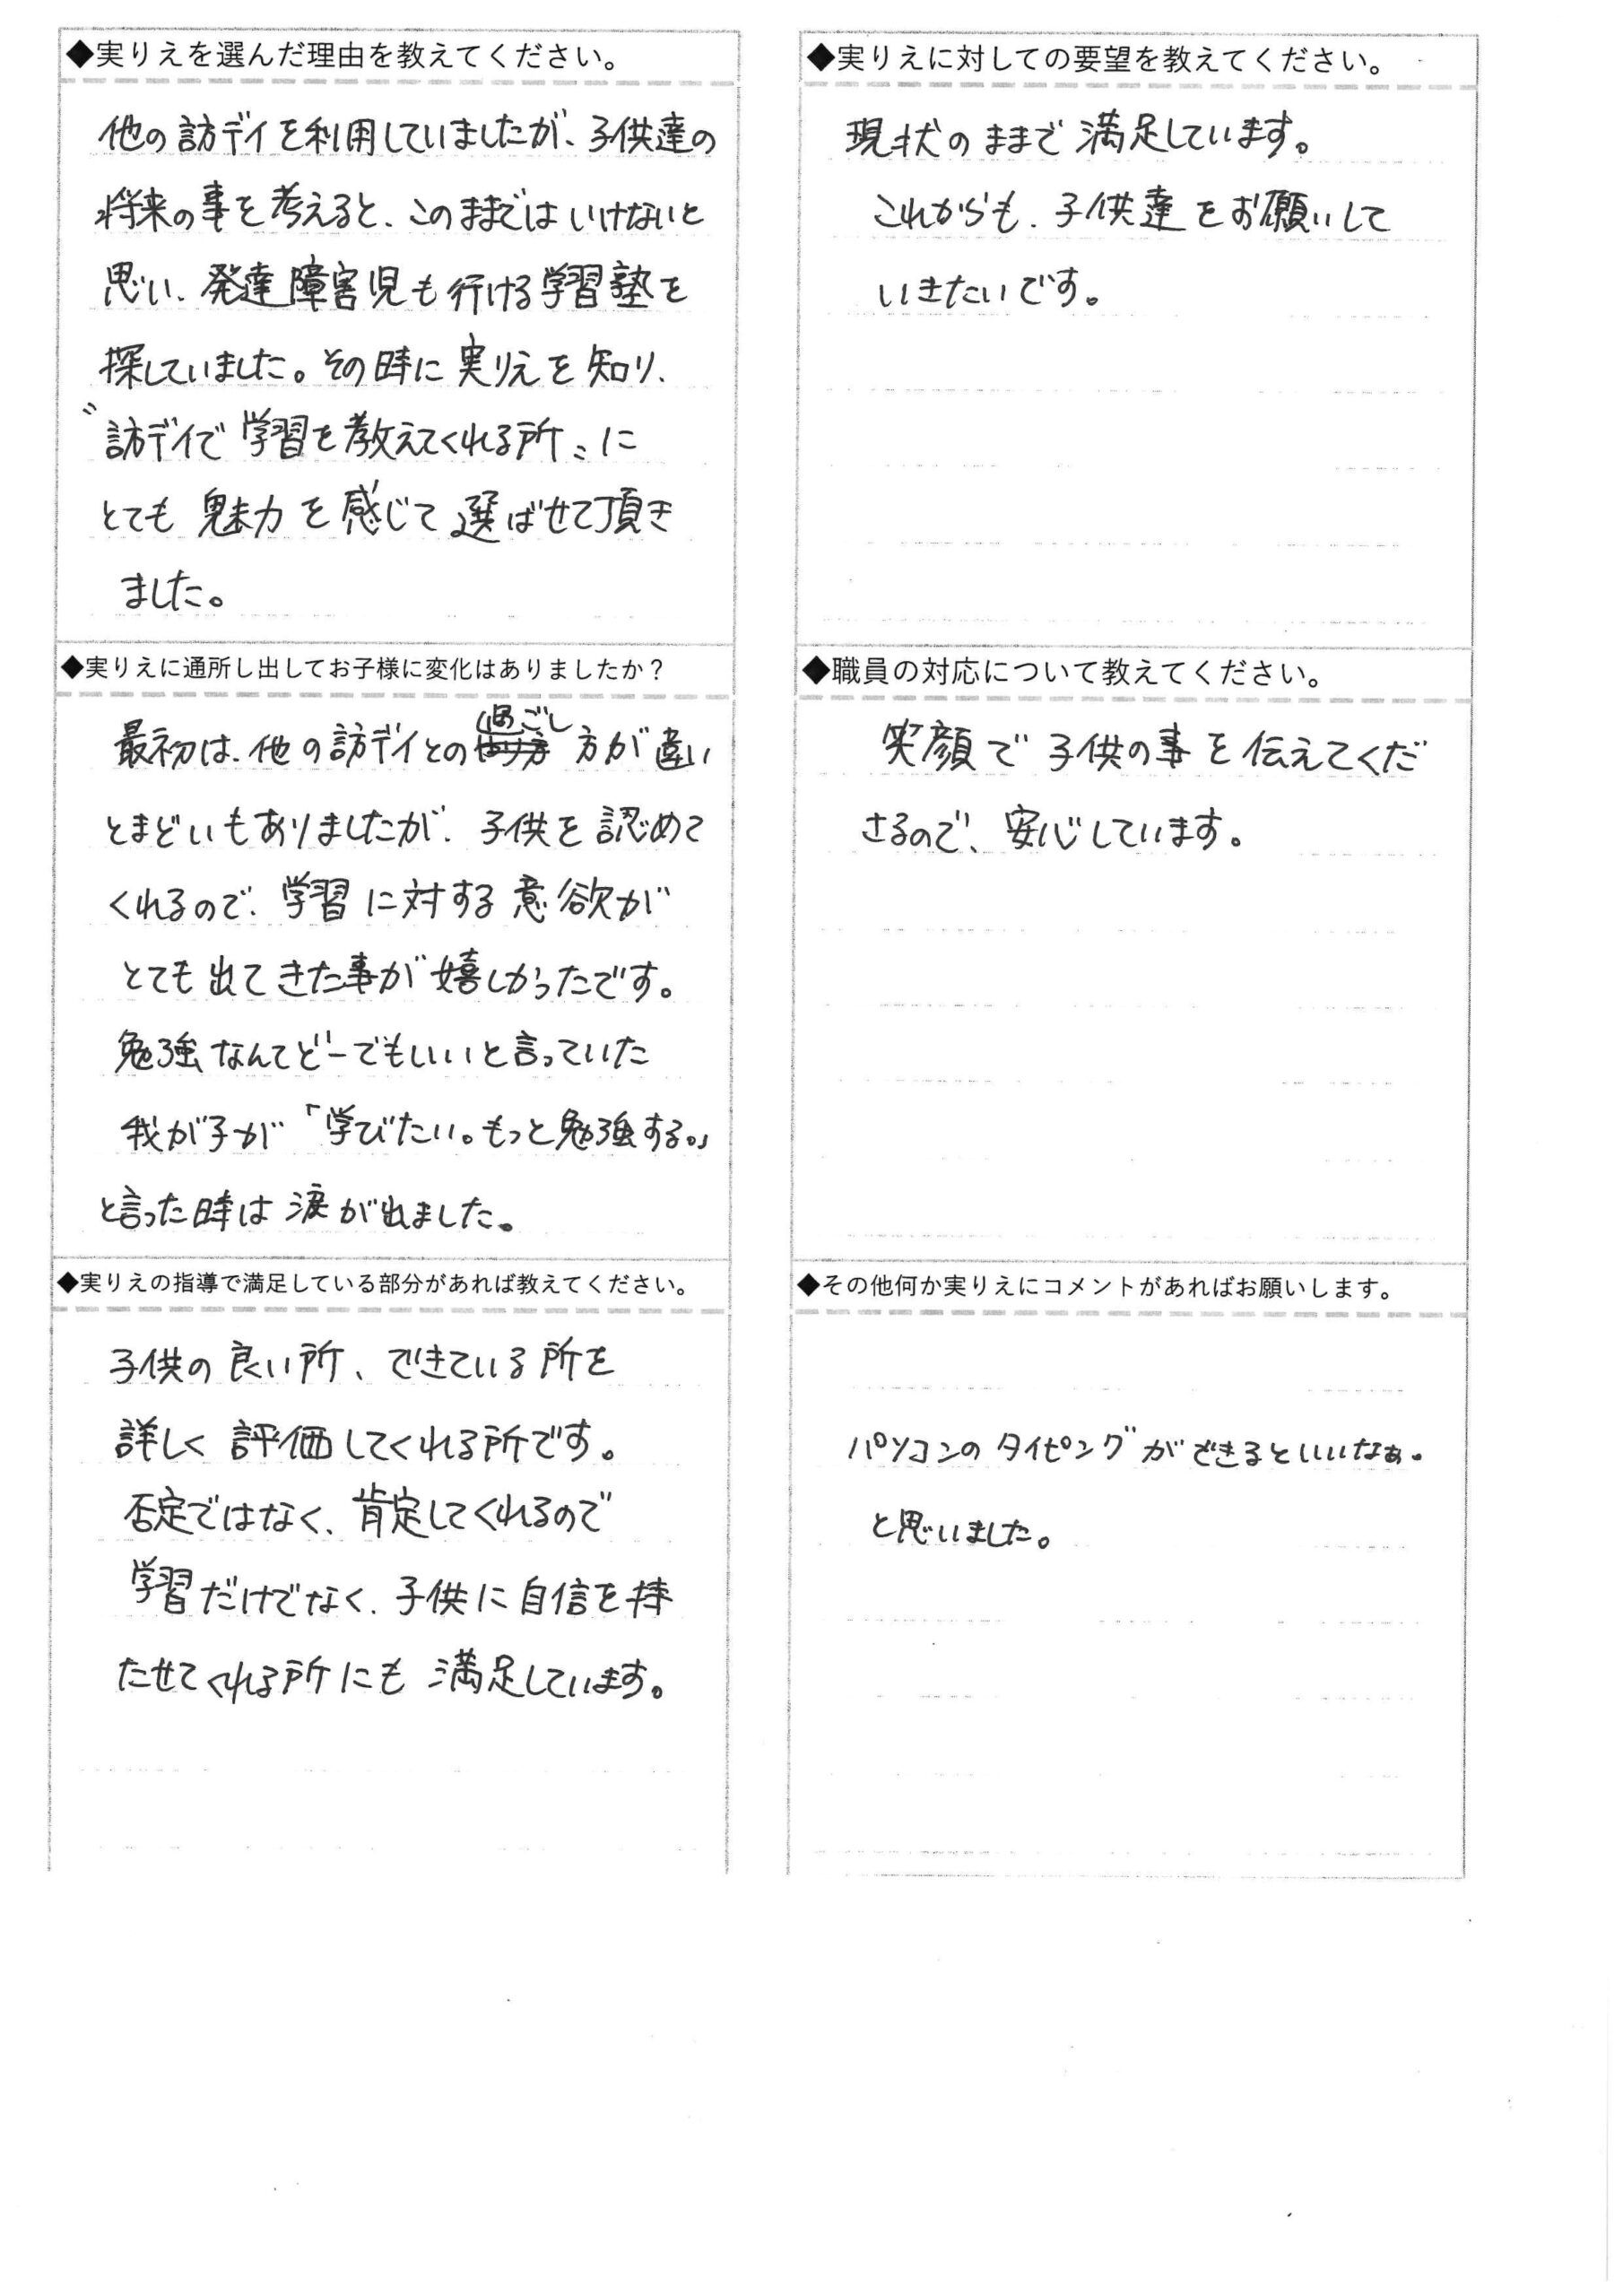 ◆実りえを選んだ理由を教えてください。
他の訪デイを利用していましたが、子供達の
将来の事を考えると、このままではいけないと
思い、発達障害児も行ける学習塾を
探していました。その時に実りえを知り、
〝訪デイで学習を教えてくれる所〟に
とても魅力を感じて選ばせて頂き
ました。
◆実りえに通所し出してお子様に変化はありましたか？
最初は、他の訪デイとの過ごし方が違い
とまどいもありましたが、子供を認めて
くれるので、学習に対する意欲が
とても出てきた事が嬉しかったです。
勉強なんてどーでもいいと言っていた
我が子が「学びたい。もっと勉強する。」
と言った時は涙が出ました。
◆実りえの指導で満足している部分があれば教えてください。
子供の良い所、できている所を
詳しく評価してくれる所です。
否定ではなく、肯定してくれるので
学習だけでなく、子供に自信を持
たせてくれる所にも満足しています。
◆実りえに対しての要望を教えてください。
現状のままで満足しています。
これからも、子供達をお願いして
いきたいです。
◆職員の対応について教えてください。
笑顔で子供の事を伝えてくだ
さるので、安心しています。
◆その他何か実りえにコメントがあればお願いします。
パソコンのタイピングができるといいなぁ。
と思いました。